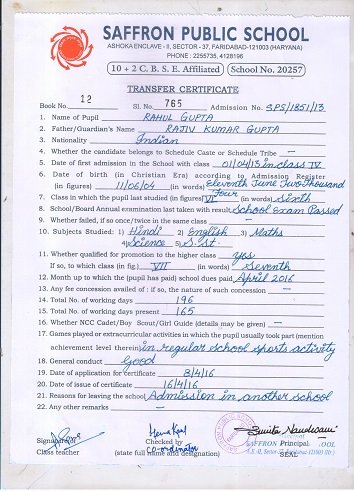 SAFFRON PUBLIC SCHOOL
ASHOKA ENCLAVE - II, SECTOR - 37, FARIDABAD-121003 (HARYANA)
PHONE : 2255735, 4128196
10 + 2 C. B. S. E. Affiliated School No. 20257
TRANSFER CERTIFICATE
Book No. 12 Sl. No. 765 Admission No. SPS/1851/13
1. Name of Pupil RAHUL GUPTA
2. Father/Guardian's Name RAJIV KUMAR GUPTA
3. Nationality Indian
4. Whether the candidate belongs to Schedule Caste or Schedule Tribe —
5. Date of first admission in the School with class 01/04/13 in class IV
6. Date of birth (in Christian Era) according to Admission Register
(in figures) 11/06/04 (in words) Eleventh June Two Thousand Four
7. Class in which the pupil last studied (in figures) VI (in words) Sixth
8. School/Board Annual examination last taken with result School Exam Passed
9. Whether failed, if so once/twice in the same class —
10. Subjects Studied: 1) Hindi 2) English 3) Maths
4) Science 5) S.St.
11. Whether qualified for promotion to the higher class yes
If so, to which class (in fig.) VII (in words) Seventh
12. Month up to which the (pupil has paid) school dues paid April 2016
13. Any fee concession availed of : if so, the nature of such concession —
14. Total No. of working days 196
15. Total No. of working days present 165
16. Whether NCC Cadet/Boy Scout/Girl Guide (details may be given) —
17. Games played or extracurricular activities in which the pupil usually took part (mention
achievement level therein) in regular school sports activity
18. General conduct Good
19. Date of application for certificate 8/4/16
20. Date of issue of certificate 16/4/16
21. Reasons for leaving the school Admission in another school
22. Any other remarks —
Signature of Checked by Principal
Class teacher co-ordinator (state full name and designation) SEAL